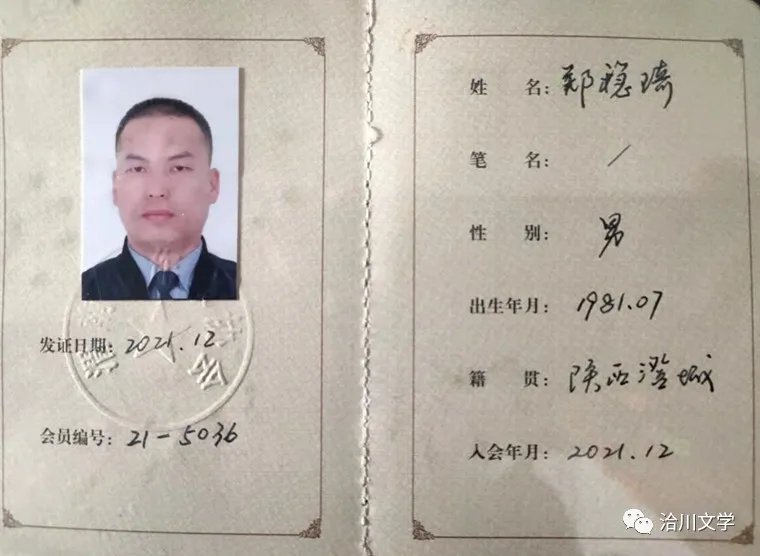 发证日期：2021.12
会员编号：21-5036
姓 名：郑稳琦
笔 名：/
性 别：男
出生年月：1981.07
籍 贯：陕西澄城
入会年月：2021.12
洽川文学